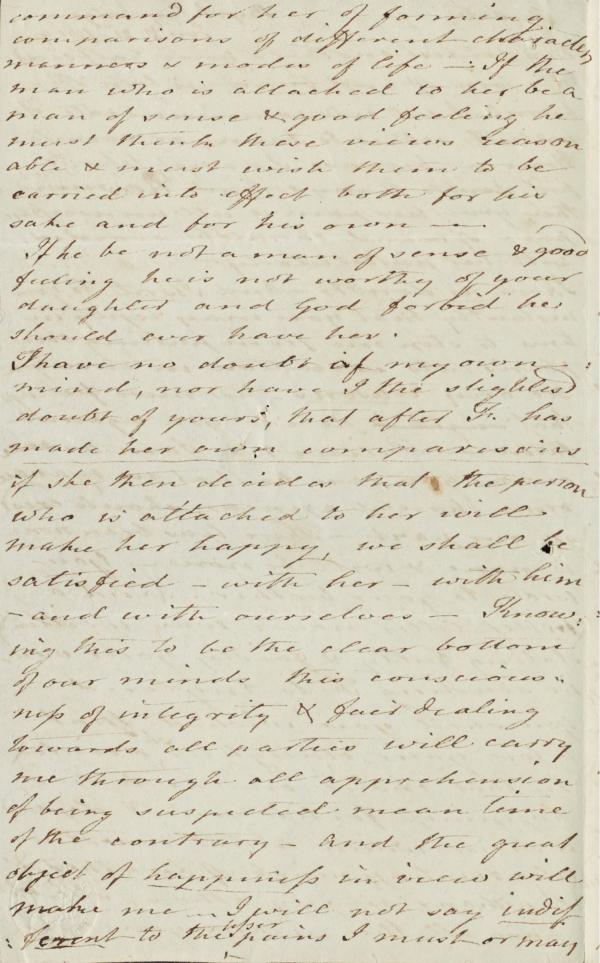 command for her of forming
comparisons of different character
manners & modes of life – If the
man who is attached to her be a
man of sense & good feeling he
must think these views reason
able & must wish them to be
carried into effect both for his
sake and for his own –
If he be not a man of sense & good
feeling he is not worthy of your
daughter and God forbid he
should ever have her.
I have no doubt of my own
mind, nor have I the slightest
doubt of yours, that after Fr. has
made her own comparisons
if she then decides that the person
who is attached to her will
make her happy, we shall be
satisfied – with her – with him
– and with ourselves – Know:
ing this to be the clear bottom
of our minds this conscious:
ness of integrity & fair dealing
towards all parties will carry
me through all apprehension
of being suspected mean time
of the contrary – and the great
object of happiness in view will
make me – I will not say indif
: ferent to the lesser pains I must or may